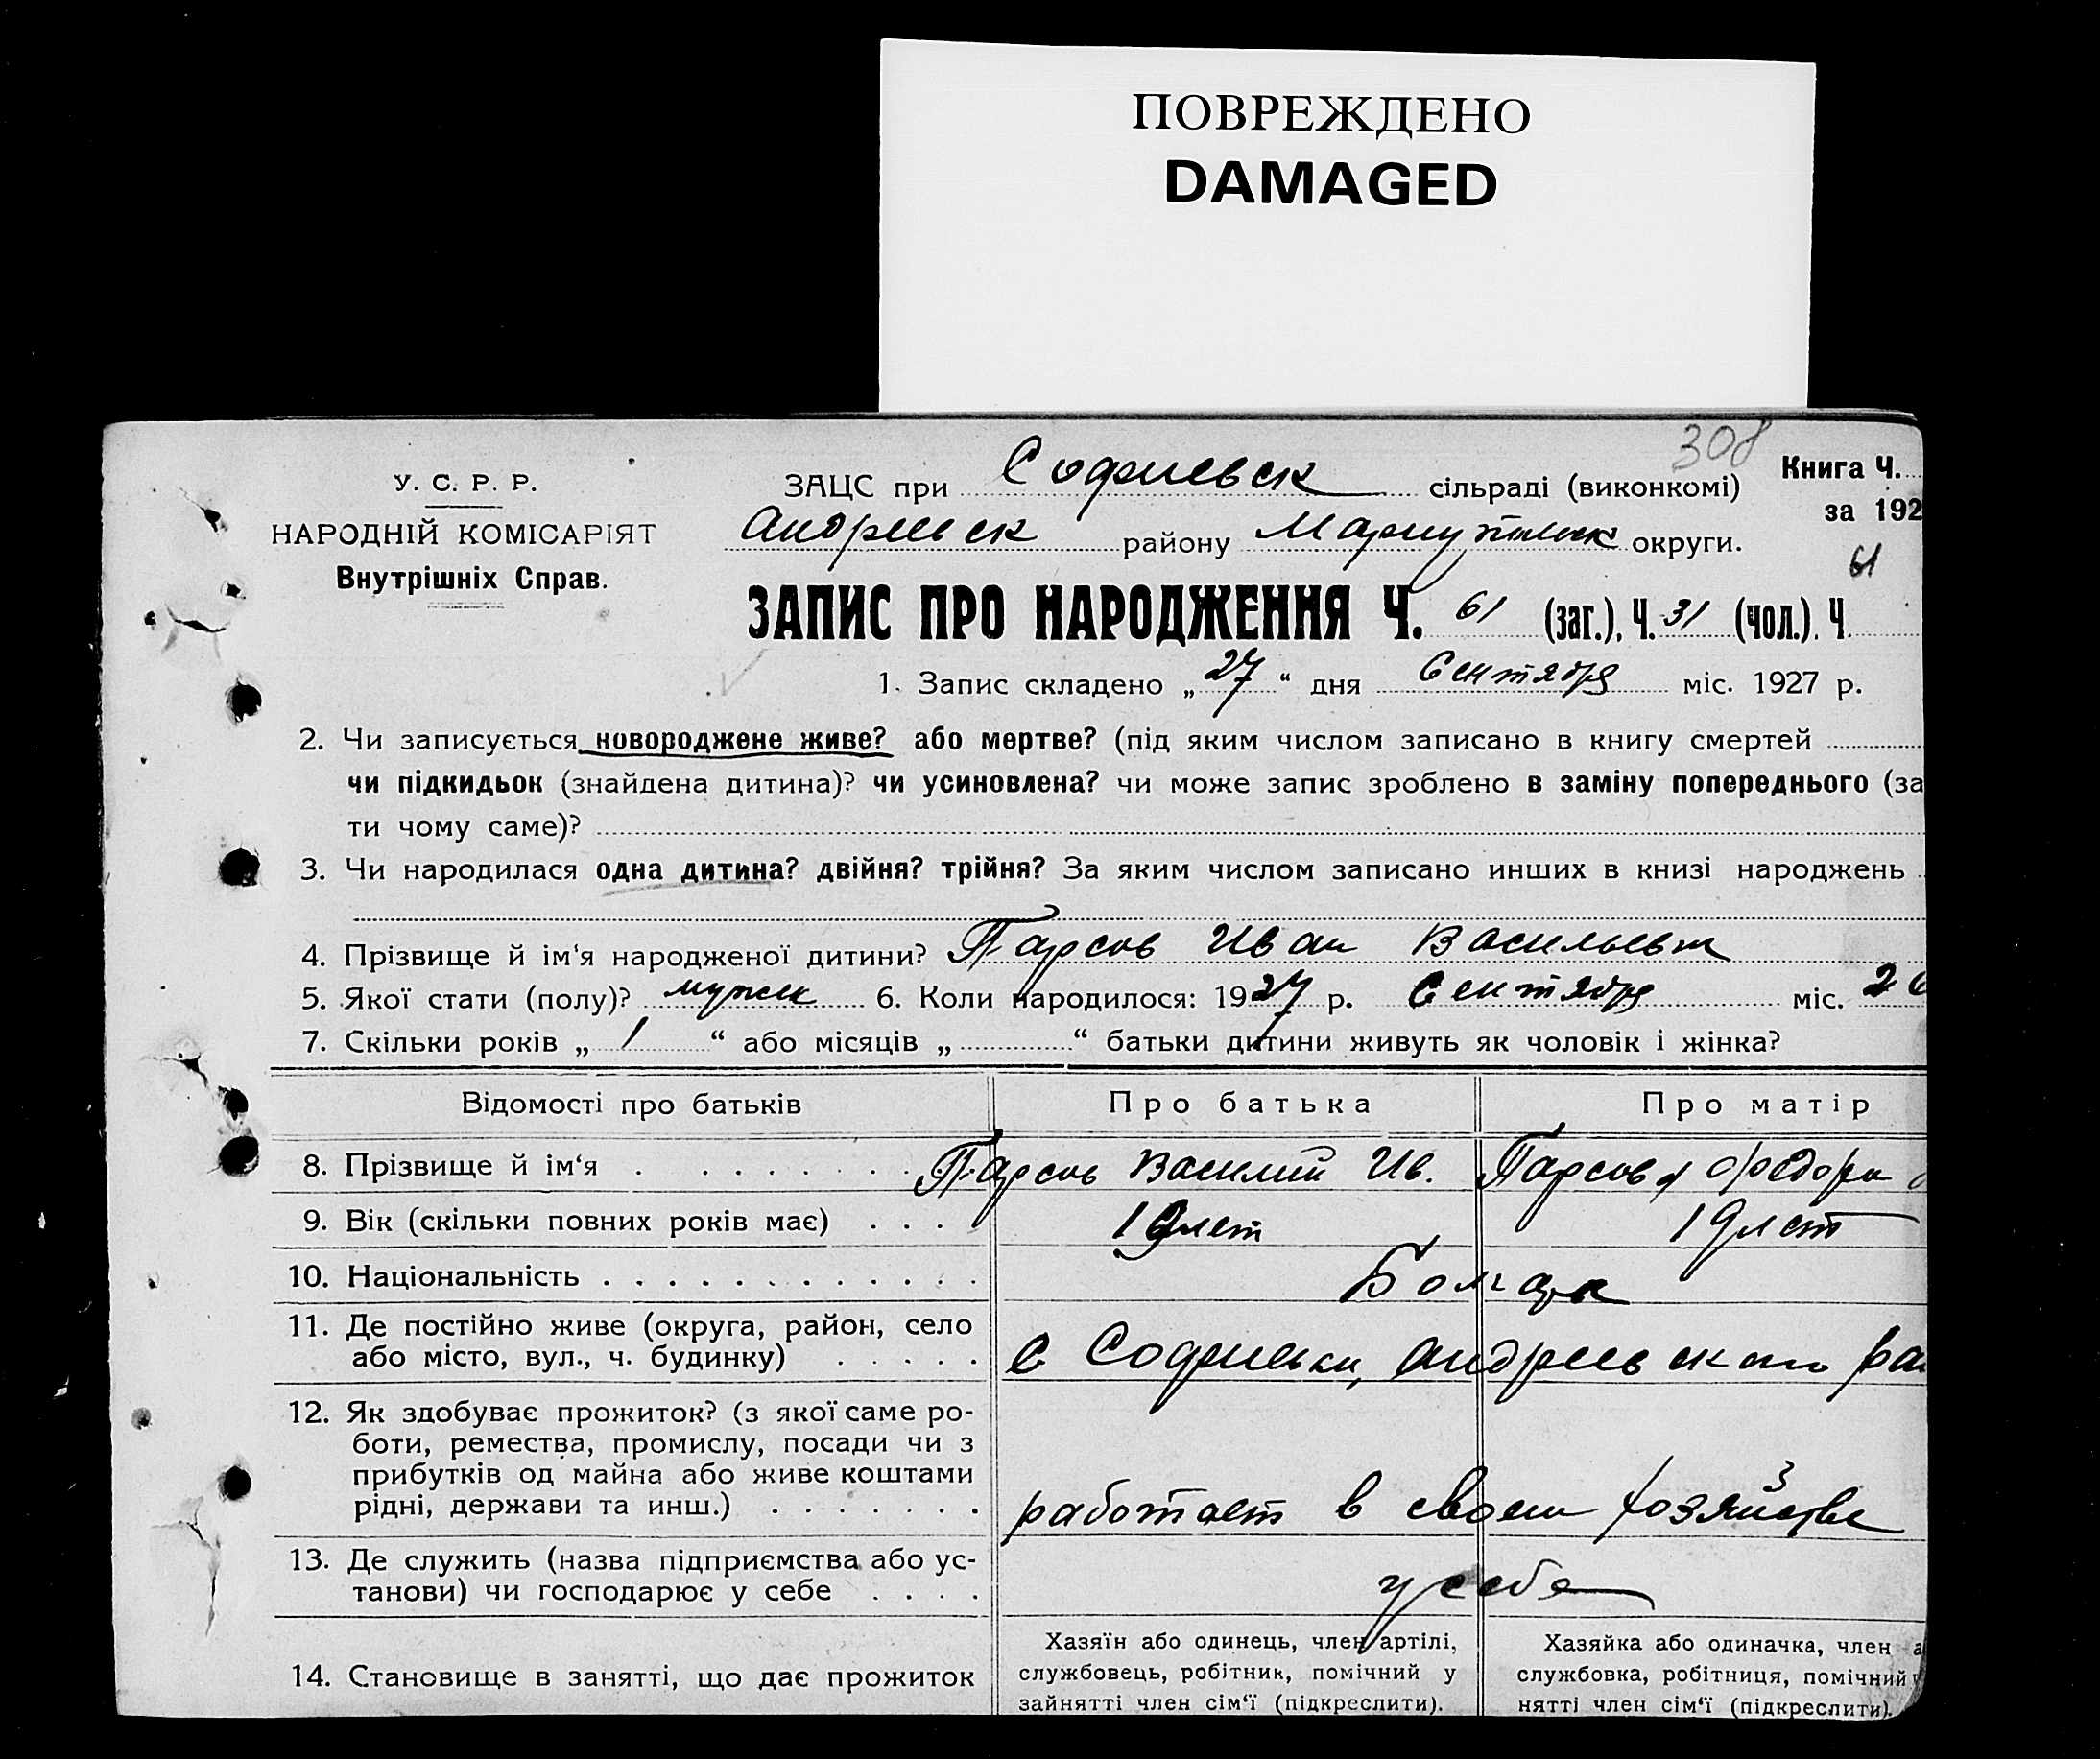 ПОВРЕЖДЕНО
DAMAGED
308
У. С. Р. Р.
НАРОДНІЙ КОМІСАРІЯТ
Внутрішніх Справ.
ЗАЦС при Софиевск сільраді (виконкомі)
Книга Ч.
за 192
Андреевск району Мариупольск округи.
61
ЗАПИС ПРО НАРОДЖЕННЯ Ч. 61 (заг.), Ч. 31 (чол.). Ч.
1. Запис складено „ 27 “ дня Сентября міс. 1927 р.
2. Чи записується новороджене живе? або мертве? (під яким числом записано в книгу смертей
чи підкидьок (знайдена дитина)? чи усиновлена? чи може запис зроблено в заміну попереднього (за
ти чому саме)?
3. Чи народилася одна дитина? двійня? трійня? За яким числом записано инших в книзі народжень
4. Прізвище й ім‘я народженої дитини? Парсов Иван Васильевич
5. Якої стати (полу)? мужск 6. Коли народилося: 1927 р. Сентября міс. 26
7. Скільки років „ 1 “ або місяців „ “ батьки дитини живуть як чоловік і жінка?
Відомості про батьків Про батька Про матір
8. Прізвище й ім‘я Парсов Василий Ив. Парсова Федора
9. Вік (скільки повних років має) 19 лет 19 лет
10. Національність Болгары
11. Де постійно живе (округа, район, село
або місто, вул., ч. будинку) с Софиевки, Андреевского ра
12. Як здобуває прожиток? (з якої саме ро-
боти, ремества, промислу, посади чи з
прибутків од майна або живе коштами
рідні, держави та инш.) работает в своем хозяйстве
13. Де служить (назва підприємства або ус-
танови) чи господарює у себе у себя
14. Становище в занятті, що дає прожиток
Хазяїн або одинець, член артілі,
службовець, робітник, помічний у
зайнятті член сім‘ї (підкреслити).
Хазяйка або одиначка, член а
службовка, робітниця, помічний у
нятті член сім‘ї (підкреслити).